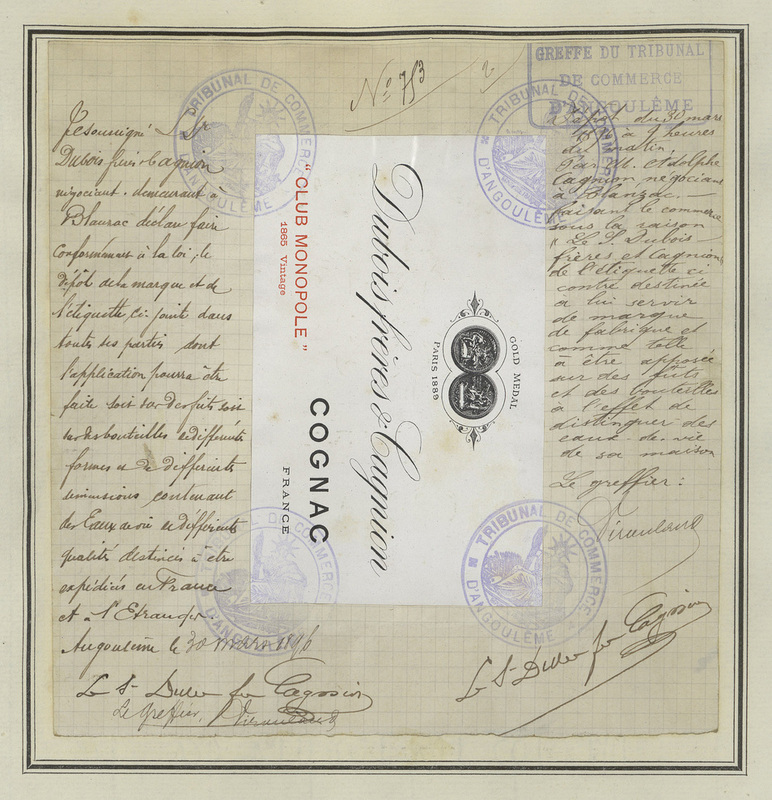 No 753
2
GREFFE DU TRIBUNAL
DE COMMERCE
D'ANGOULÊME
TRIBUNAL DE COMMERCE
D'ANGOULÊME
TRIBUNAL DE COMMERCE
D'ANGOULÊME
Je sousigné Sr
Dubois frères Cagnion
négociant demeurant à
Blanzac déclare faire
Conformément à la loi, le
dépôt de la marque et de
l'étiquette ci-jointe dans
toutes ses parties dont
l'application pourra être
faite soit sur des futs soit
sur des bouteilles de différentes
formes et de differents
dimensions contenant
des Eaux de vie de différentes
qualités destinées à être
expédiées en France
et à l'Etranger
Angoulême le 30 mars 1896
Le Sr Dubois fres Cagnion
Le Greffier,
"CLUB MONOPOLE"
1865 Vintage
COGNAC
FRANCE
Dubois frères & Cagnion
GOLD MEDAL
PARIS 1889
Dépôt du 30 mars
1896 à 9 heures
du matin,
Par M. Adolphe
Cagnion négociant
à Blanzac.—
faisant le commerce
sous la raison
"Le S. Dubois
frères et Cagnion,
de l'étiquette ci
contre destinée
à lui servir
de marque
de fabrique et
comme telle
à être apposée
sur des futs
et des bouteilles
à l'effet de
distinguer des
eaux-de-vie
de sa maison
Le greffier:
Le Sr Dubois fres Cagnion
TRIBUNAL DE COMMERCE
D'ANGOULÊME
D'ANGOULÊME